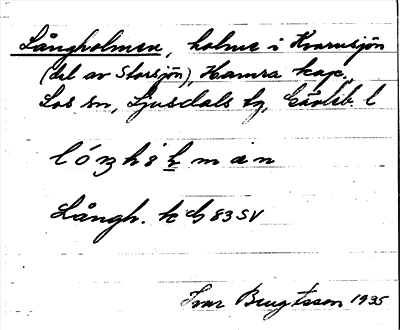 Långholmen, holme i Kvarnsjön
(del av Storsjön), Hamra kap.,
Los sn, Ljusdals tg, Gävleb. l
Långh. kbl 83 SV
Ivar Bengtsson 1935